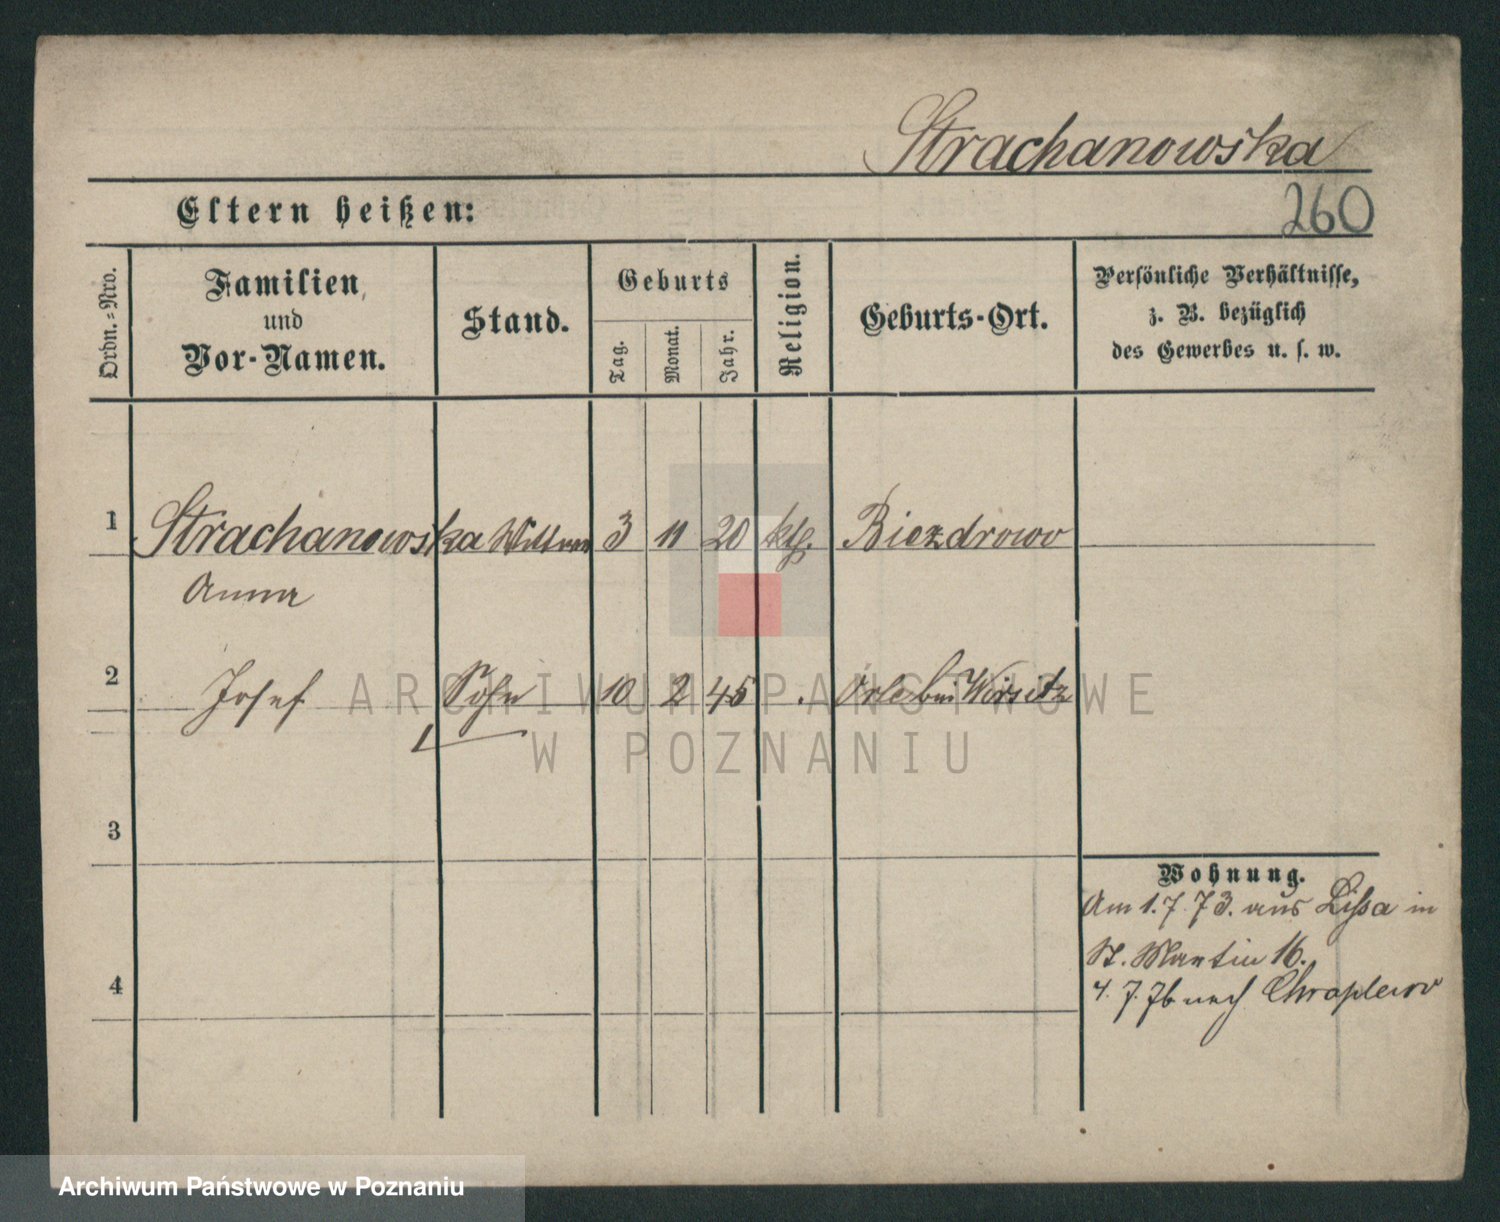 Strachanowska
Eltern heißen:
260
Ordn.-Nro.
Familien
und
Vor-Namen.
Stand.
Geburts
Tag.
Monat.
Jahr.
Religion.
Geburts-Ort.
Persönliche Verhältnisse,
z. B. bezüglich
des Gewerbes u. s. w.
1 Strachanowska Wittwe 3 11 20 kth. Biezdrowo
Anna
2 Josef Sohn 10 2 45 . Orle bei Wirsitz
ARCHIWUM PAŃSTWOWE
W POZNANIU
3
Wohnung.
Am 1.7.73. aus Lissa in
St. Martin 16.
4
4.7.76 nach Chraplewo
Archiwum Państwowe w Poznaniu